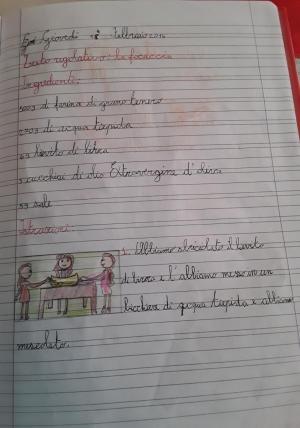 Giovedì febbraio
Testo regolativo: la focaccia
Ingredienti:
500g di farina di grano tenero
di acqua tiepida
lievito di birra
cucchiai di olio Extravergine d'oliva
5g sale
Istruzioni:
1. Abbiamo sbriciolato il lievito
di birra e l'abbiamo messo in un
bicchiere di acqua tiepida e abbiamo
mescolato.